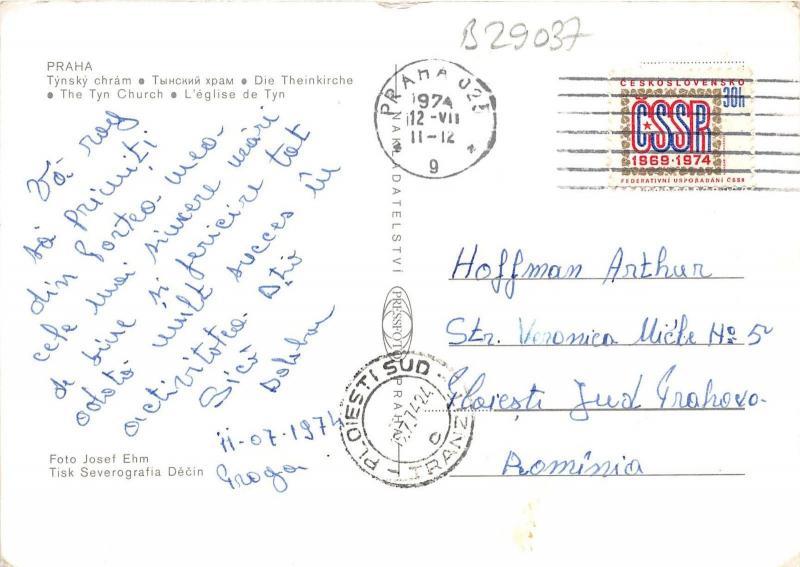 B29037
PRAHA
Týnský chrám • Тынский храм • Die Theinkirche
• The Tyn Church • L'église de Tyn
PRAHA 025
1974
12 -VII
11-12
9
ČESKOSLOVENSKO
30H
ČSSR
1969 · 1974
FEDERATIVNÍ USPOŘÁDÁNÍ ČSSR
Vă rog
să primiți
din partea mea
cele mai sincere urări
de bine și fericire tot
odată mult succes în
activitatea Dtră
11-07-1974
Praga
NAKLADATELSTVÍ PRESSFOTO PRAHA
Hoffman Arthur
Str. Veronica Micle No 5
Ploiești Jud Prahova
Romînia
PLOIESTI SUD
TRANZ
Foto Josef Ehm
Tisk Severografia Děčín